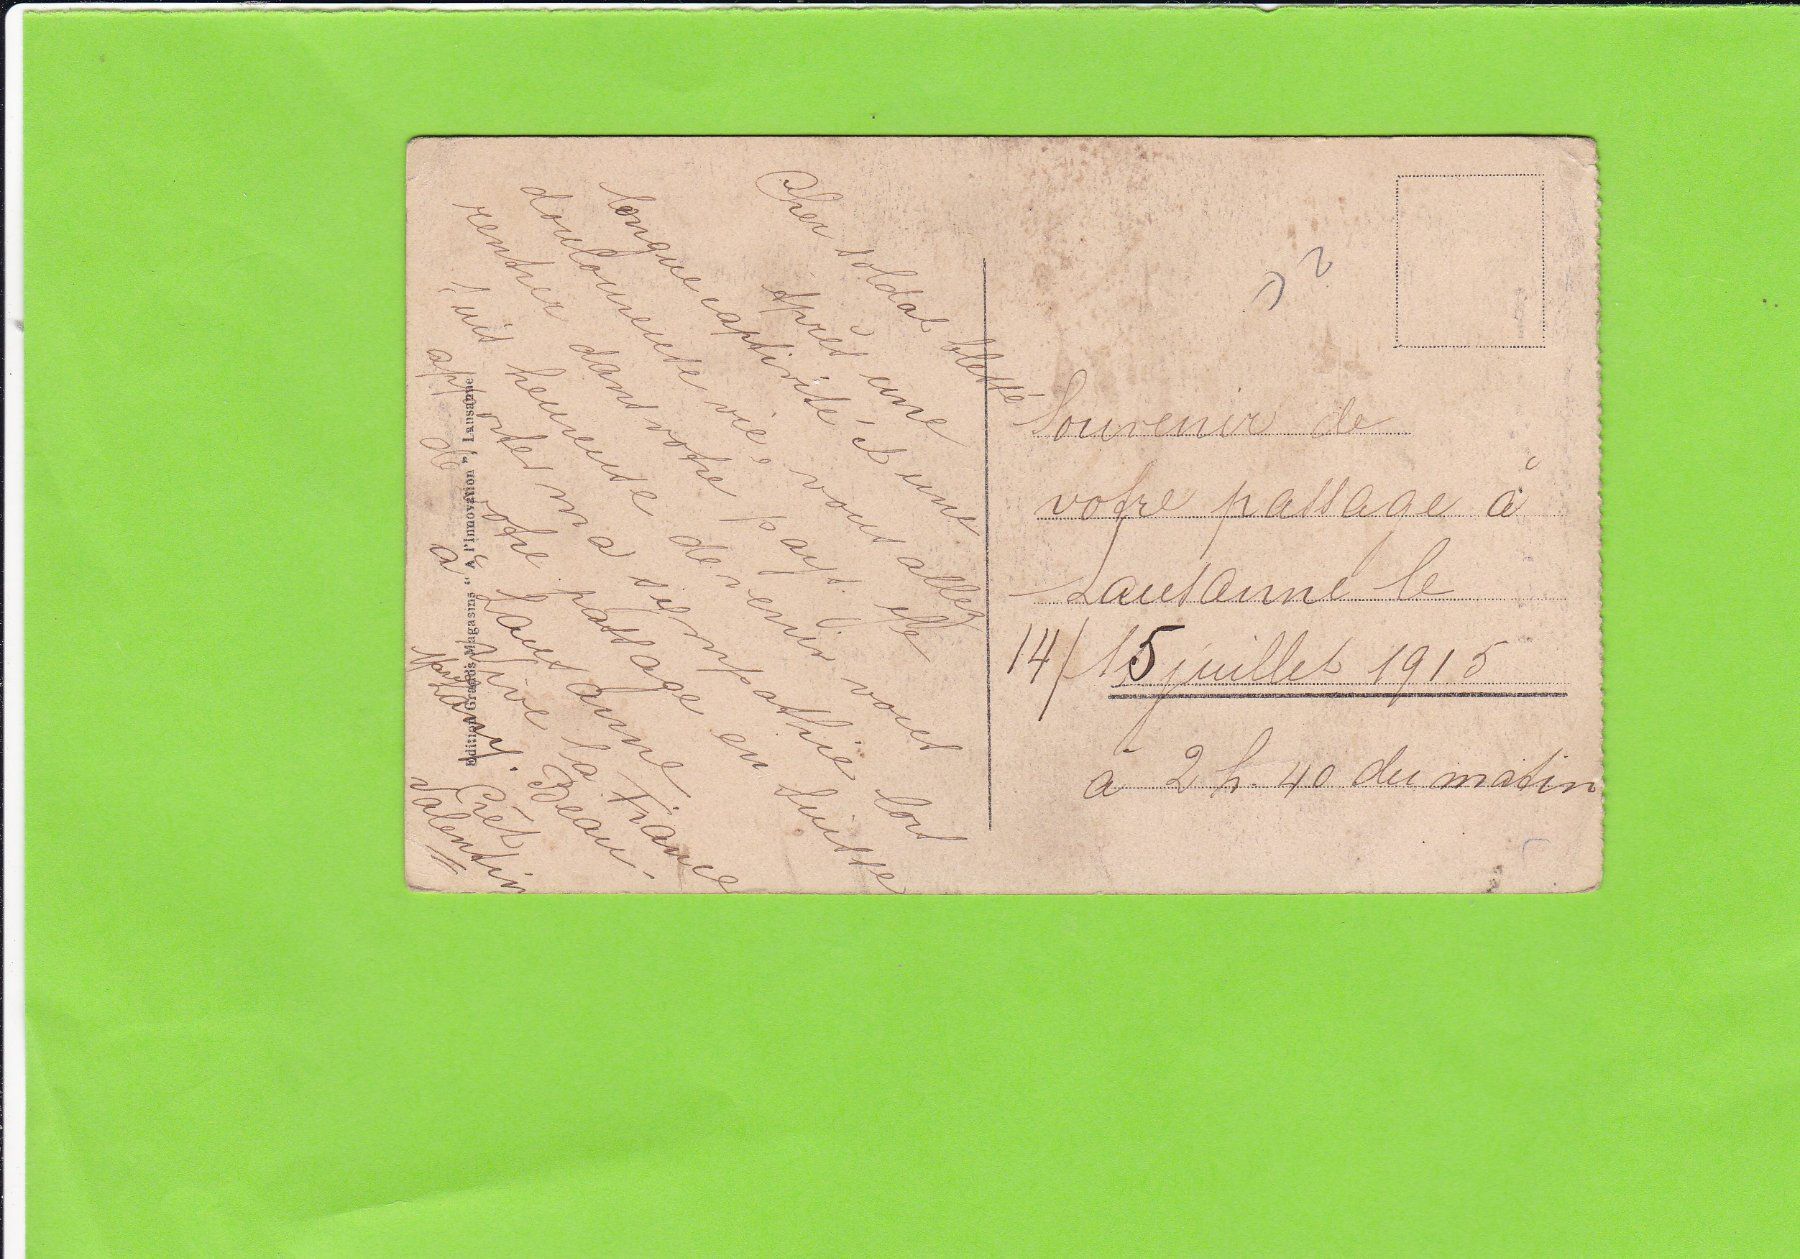 Cher soldat blessé
Après une
longue captivité et une
douloureuse vie, vous allez
rentrer dans votre pays. Je
suis heureuse de venir vous
apporter ma simpathie lors
de votre passage en Suisse
à Lausanne
Vive la France
Beau-
Crêt
Valentin
Edition Grands Magasins "A l'Innovation", Lausanne
Souvenir de
votre passage à
Lausanne le
14/15 juillet 1915
à 2 h. 40 du matin